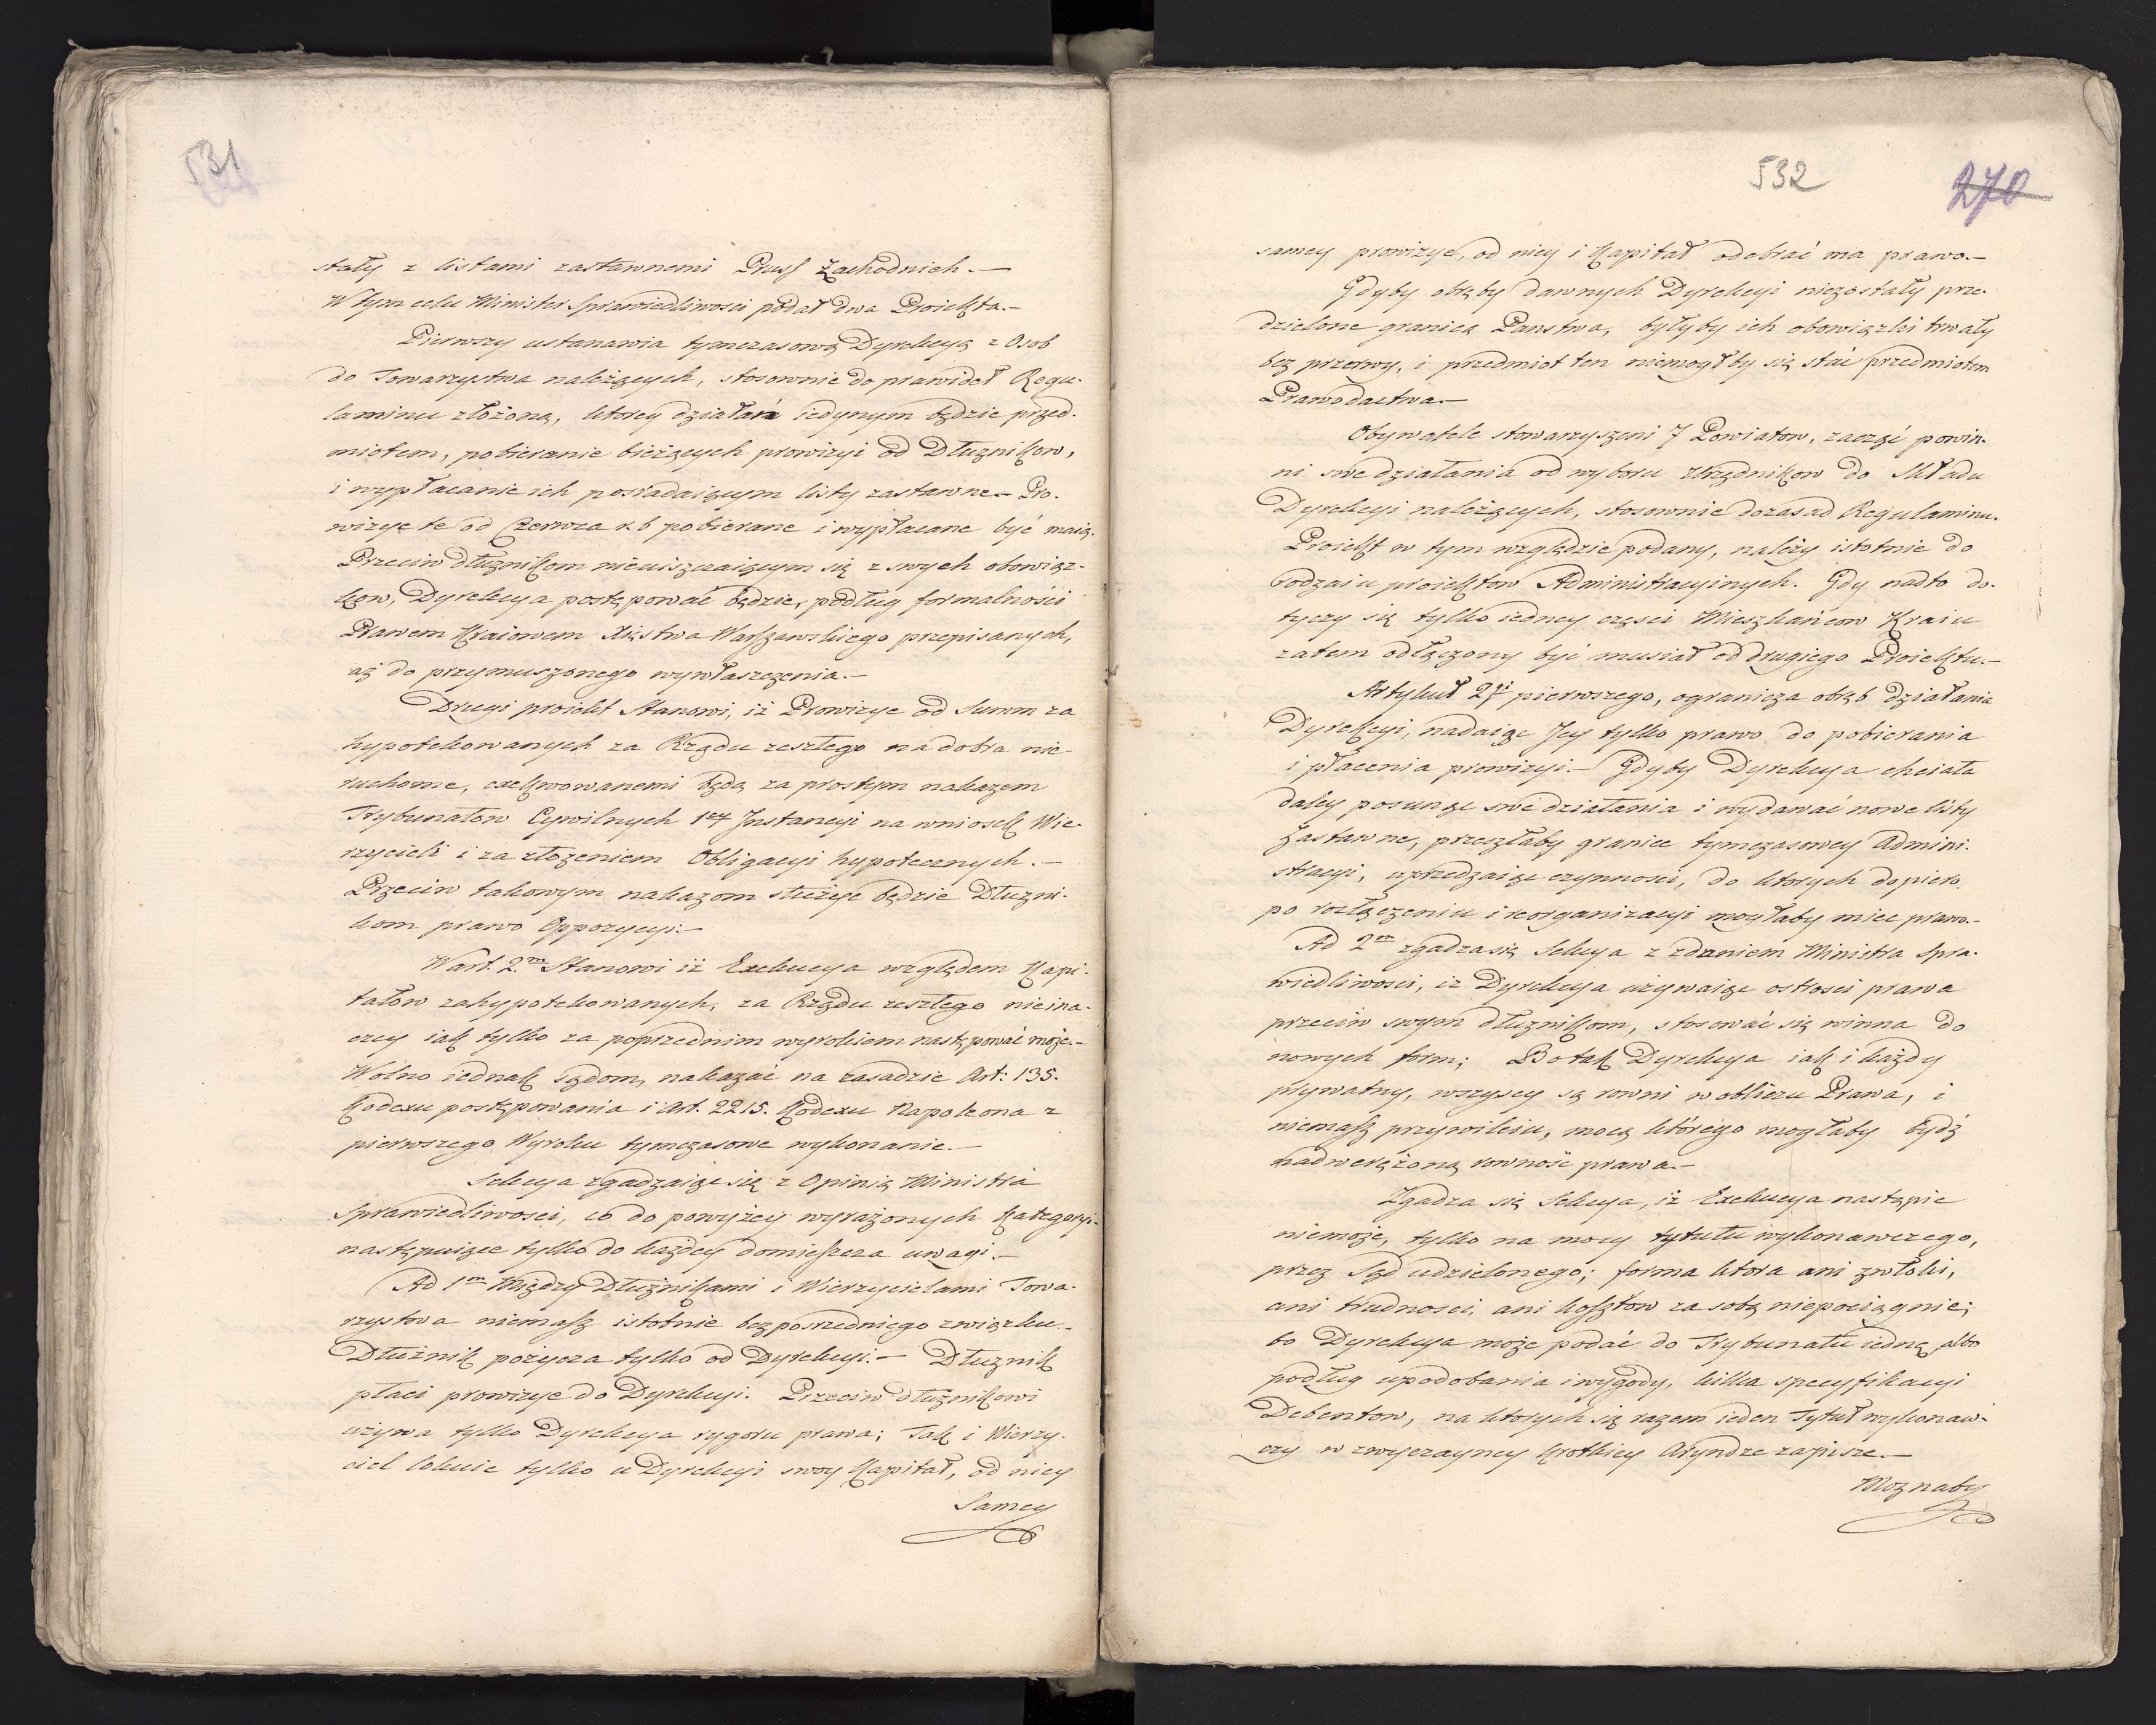 531
stały z listami zastawnemi Pruss Zachodnich.—
W tym celu Minister Sprawiedliwosci podał dwa Proiekta.—
Pierwszy ustanawia tymczasową Dyrekcyą z Osob
do Towarzystwa należących, stosownie do prawideł Regu-
laminu złożoną, ktorey działań iedynym będzie przed-
miotem, pobieranie bieżących prowizyi od Dłuznikow,
i wypłacanie ich posiadaiącym listy zastawne.— Pro-
wizye te od Czerwca r. b pobierane i wypłacane być maią.
Przeciw dłuznikom nieuiszczaiącym się z swych obowiąz-
kow, Dyrekcya postępować będzie, podług formalności
Prawem Kraiowem Xięstwa Warszawskiego przepisanych,
aż do przymuszonego wywłaszczenia.—
Drugi proiekt Stanowi, iż Prowizye od Summ za
hypotekowanych za Rządu zeszłego na dobra nie-
ruchome, exekwowanemi będą za prostym nakazem
Trybunałow Cywilnych 1ey Instancyi na wniosek Wie-
rzycieli i za złożeniem Obligacyi hypotecznych.—
Przeciw takowym nakazom służyć będzie Dłuzni-
kom prawo Oppozycyi.—
W art. 2.m Stanowi iż Exekucya względem Kapi-
tałów zahypotekowanych, za Rządu zeszłego nieina-
czey iak tylko za poprzednim wyrokiem następować może.—
Wolno iednak sądom, nakazać na zasadzie Art: 135.
Kodexu postępowania i Art. 2215. Kodexu Napoleona z
pierwszego Wyroku tymczasowe wykonanie.—
Sekcya zgadzaiąc się z Opinią Ministra
Sprawiedliwosci, co do powyżey wyrażonych Kategoryi—
następuiące tylko do każdey domieszcza uwagi.—
Ad 1m Między Dłużnikami i Wierzycielami Towa-
rzystwa niemasz istotnie bezposredniego związku.—
Dłużnik pożycza tylko od Dyrekcyi.— Dłuznik
płaci prowizye do Dyrekcyi. Przeciw dłużnikowi
używa tylko Dyrekcya rygoru prawa; Tak i Wierzy-
ciel lokuie tylko u Dyrekcyi swoy Kapitał, od niey
Samey
532
270
samey prowizye, od niey i Kapitał odebrać ma prawo.—
Gdyby obręby dawnych Dyrekcyi niezostały prze-
dzielone granicą Panstwa, byłyby ich obowiązki trwały
bez przerwy, i przedmiot ten niemogłby się stać przedmiotem
Prawodactwa.—
Obywatele stowarzyszeni 7 Powiatow, zacząć powin-
ni swe działania od wyboru Urzędnikow do Składu
Dyrekcyi należących, stosownie do zasad Regulaminu.
Proiekt w tym względzie podany, należy istotnie do
rodzaiu proiektow Administracyinych. Gdy nadto do-
tyczy się tylko iedney części Mieszkańcow Kraiu
zatem odłączony być musiał od drugiego Proiektu.—
Artykuł 2gi pierwszego, ogranicza obręb działania
Dyrekcyi, nadaiąc Jey tylko prawo do pobierania
i płacenia prowizyi.— Gdyby Dyrekcya chciała
daley posunąć swe działania i wydawać nowe listy
zastawne, przeszłaby granice tymczasowey Admini-
stracyi, uprzedzaiąc czynnosci, do ktorych dopiero
po rozłączeniu i reorganizacyi mogłaby miec prawo.—
Ad 2m zgadza się Sekcya z zdaniem Ministra Spra-
wiedliwosci, iż Dyrekcya używaiąc ostrosci prawa
przeciw swym dłuznikom, stosować się winna do
nowych form; Bo tak Dyrekcya iak i każdy
prywatny, wszyscy są rowni w obliczu Prawa, i
niemasz przywileiu, mocą którego mogłaby bydź
nadwerężoną rowność prawa.—
Zgadza się Sekcya, iż Exekucya nastąpić
niemoże, tylko na mocy tytułu wykonawczego,
przez Sąd udzielonego; forma ktora ani zwłoki,
ani trudnosci, ani kosztow za sobą niepociągnie;
bo Dyrekcya może podać do Trybunału iedną albo
podług upodobania i wygody, kilka specyfikacyi
Debentow, na ktorych się razem ieden Tytuł wykonaw-
czy w zwyczayney krotkiey Aryndze zapisze.—
Moznaby